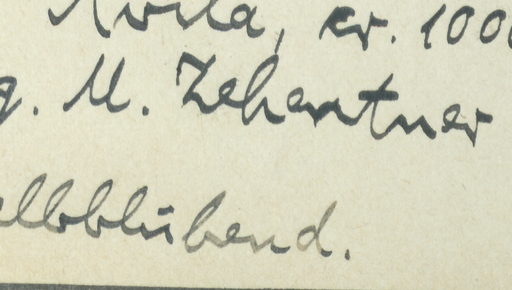 Avila, cr. 100
g. M. Zehentner
elbblühend.